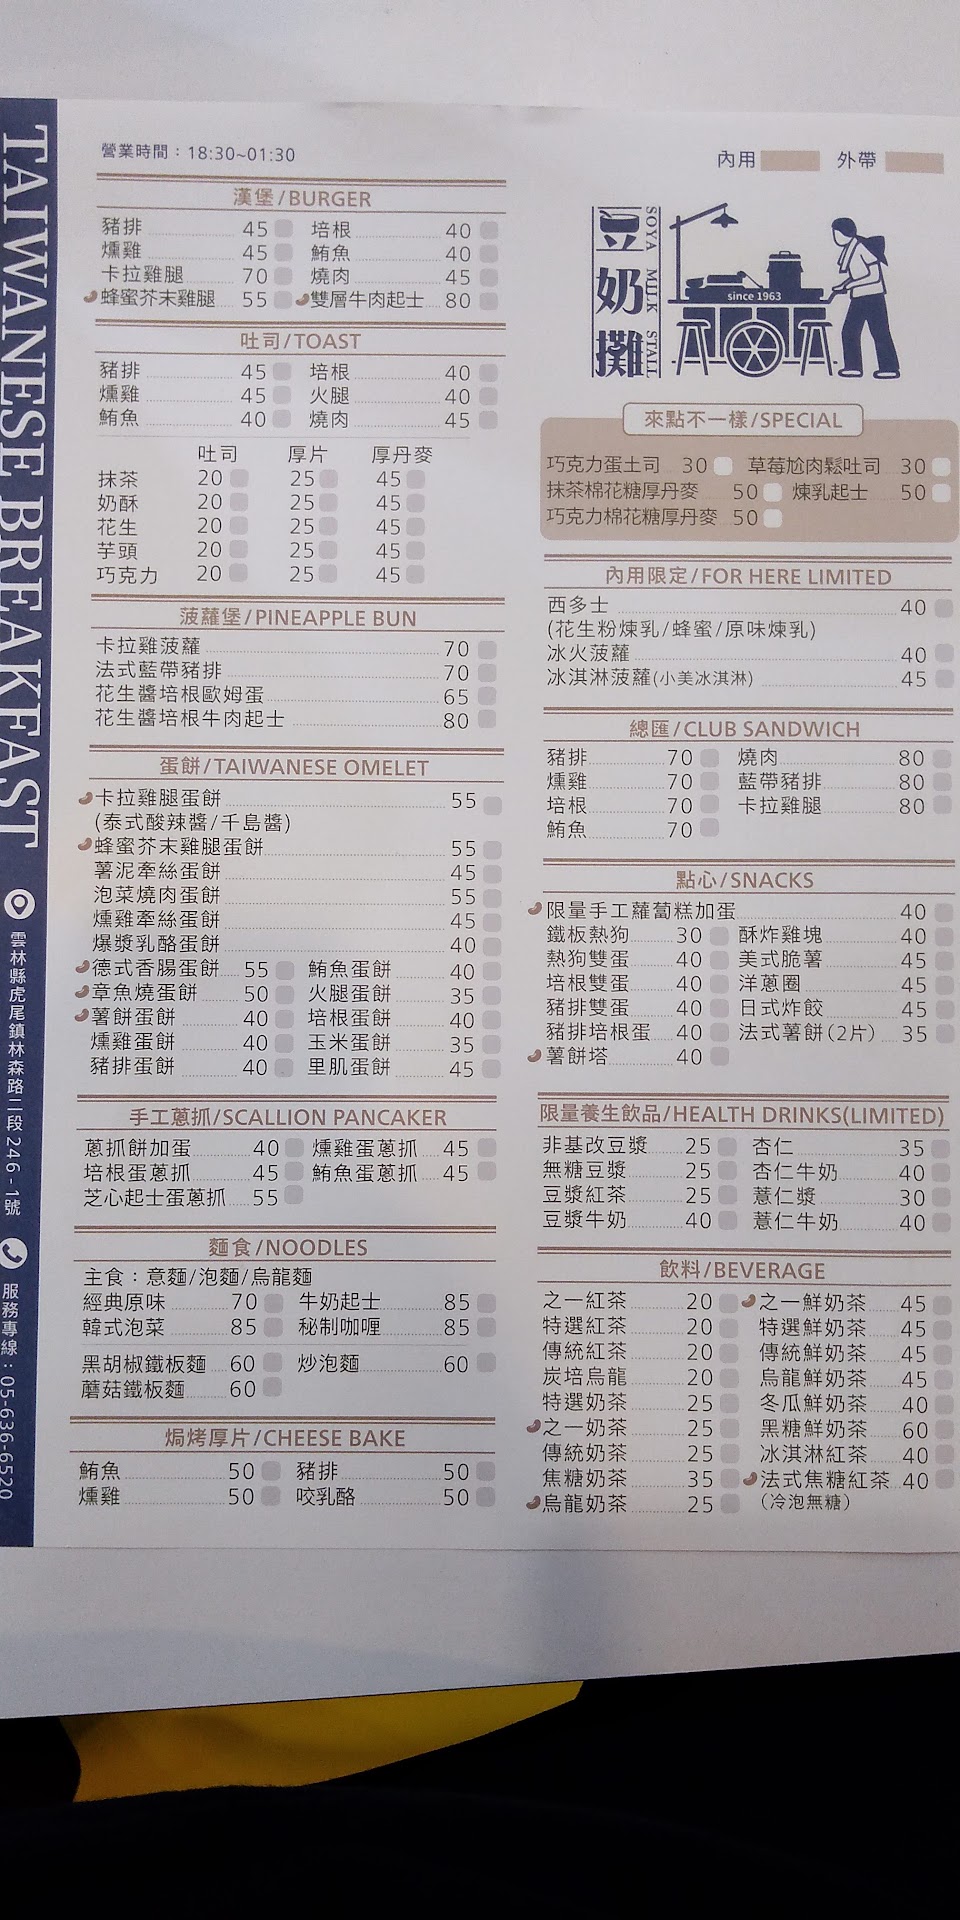 TAIWANESE BREAKFAST
雲林縣虎尾鎮林森路二段246-1號
服務專線：05-636-6520
營業時間：18:30~01:30
漢堡/BURGER
豬排 45 培根 40
燻雞 45 鮪魚 40
卡拉雞腿 70 燒肉 45
蜂蜜芥末雞腿 55 雙層牛肉起士 80
吐司/TOAST
豬排 45 培根 40
燻雞 45 火腿 40
鮪魚 40 燒肉 45
吐司 厚片 厚丹麥
抹茶 20 25 45
奶酥 20 25 45
花生 20 25 45
芋頭 20 25 45
巧克力 20 25 45
菠蘿堡/PINEAPPLE BUN
卡拉雞菠蘿 70
法式藍帶豬排 70
花生醬培根歐姆蛋 65
花生醬培根牛肉起士 80
蛋餅/TAIWANESE OMELET
卡拉雞腿蛋餅 55
(泰式酸辣醬/千島醬)
蜂蜜芥末雞腿蛋餅 55
薯泥牽絲蛋餅 45
泡菜燒肉蛋餅 55
燻雞牽絲蛋餅 45
爆漿乳酪蛋餅 40
德式香腸蛋餅 55 鮪魚蛋餅 40
章魚燒蛋餅 50 火腿蛋餅 35
薯餅蛋餅 40 培根蛋餅 40
燻雞蛋餅 40 玉米蛋餅 35
豬排蛋餅 40 里肌蛋餅 45
手工蔥抓/SCALLION PANCAKER
蔥抓餅加蛋 40 燻雞蛋蔥抓 45
培根蛋蔥抓 45 鮪魚蛋蔥抓 45
芝心起士蛋蔥抓 55
麵食/NOODLES
主食：意麵/泡麵/烏龍麵
經典原味 70 牛奶起士 85
韓式泡菜 85 秘制咖喱 85
黑胡椒鐵板麵 60 炒泡麵 60
蘑菇鐵板麵 60
焗烤厚片/CHEESE BAKE
鮪魚 50 豬排 50
燻雞 50 咬乳酪 50
內用 外帶
豆奶攤
SOYA MILK STALL
since 1963
來點不一樣/SPECIAL
巧克力蛋土司 30 草莓尬肉鬆吐司 30
抹茶棉花糖厚丹麥 50 煉乳起士 50
巧克力棉花糖厚丹麥 50
內用限定/FOR HERE LIMITED
西多士 40
(花生粉煉乳/蜂蜜/原味煉乳)
冰火菠蘿 40
冰淇淋菠蘿(小美冰淇淋) 45
總匯/CLUB SANDWICH
豬排 70 燒肉 80
燻雞 70 藍帶豬排 80
培根 70 卡拉雞腿 80
鮪魚 70
點心/SNACKS
限量手工蘿蔔糕加蛋 40
鐵板熱狗 30 酥炸雞塊 40
熱狗雙蛋 40 美式脆薯 45
培根雙蛋 40 洋蔥圈 45
豬排雙蛋 40 日式炸餃 45
豬排培根蛋 40 法式薯餅(2片) 35
薯餅塔 40
限量養生飲品/HEALTH DRINKS(LIMITED)
非基改豆漿 25 杏仁 35
無糖豆漿 25 杏仁牛奶 40
豆漿紅茶 25 薏仁漿 30
豆漿牛奶 40 薏仁牛奶 40
飲料/BEVERAGE
之一紅茶 20 之一鮮奶茶 45
特選紅茶 20 特選鮮奶茶 45
傳統紅茶 20 傳統鮮奶茶 45
炭培烏龍 20 烏龍鮮奶茶 45
特選奶茶 25 冬瓜鮮奶茶 40
之一奶茶 25 黑糖鮮奶茶 60
傳統奶茶 25 冰淇淋紅茶 40
焦糖奶茶 35 法式焦糖紅茶 40
烏龍奶茶 25 (冷泡無糖)